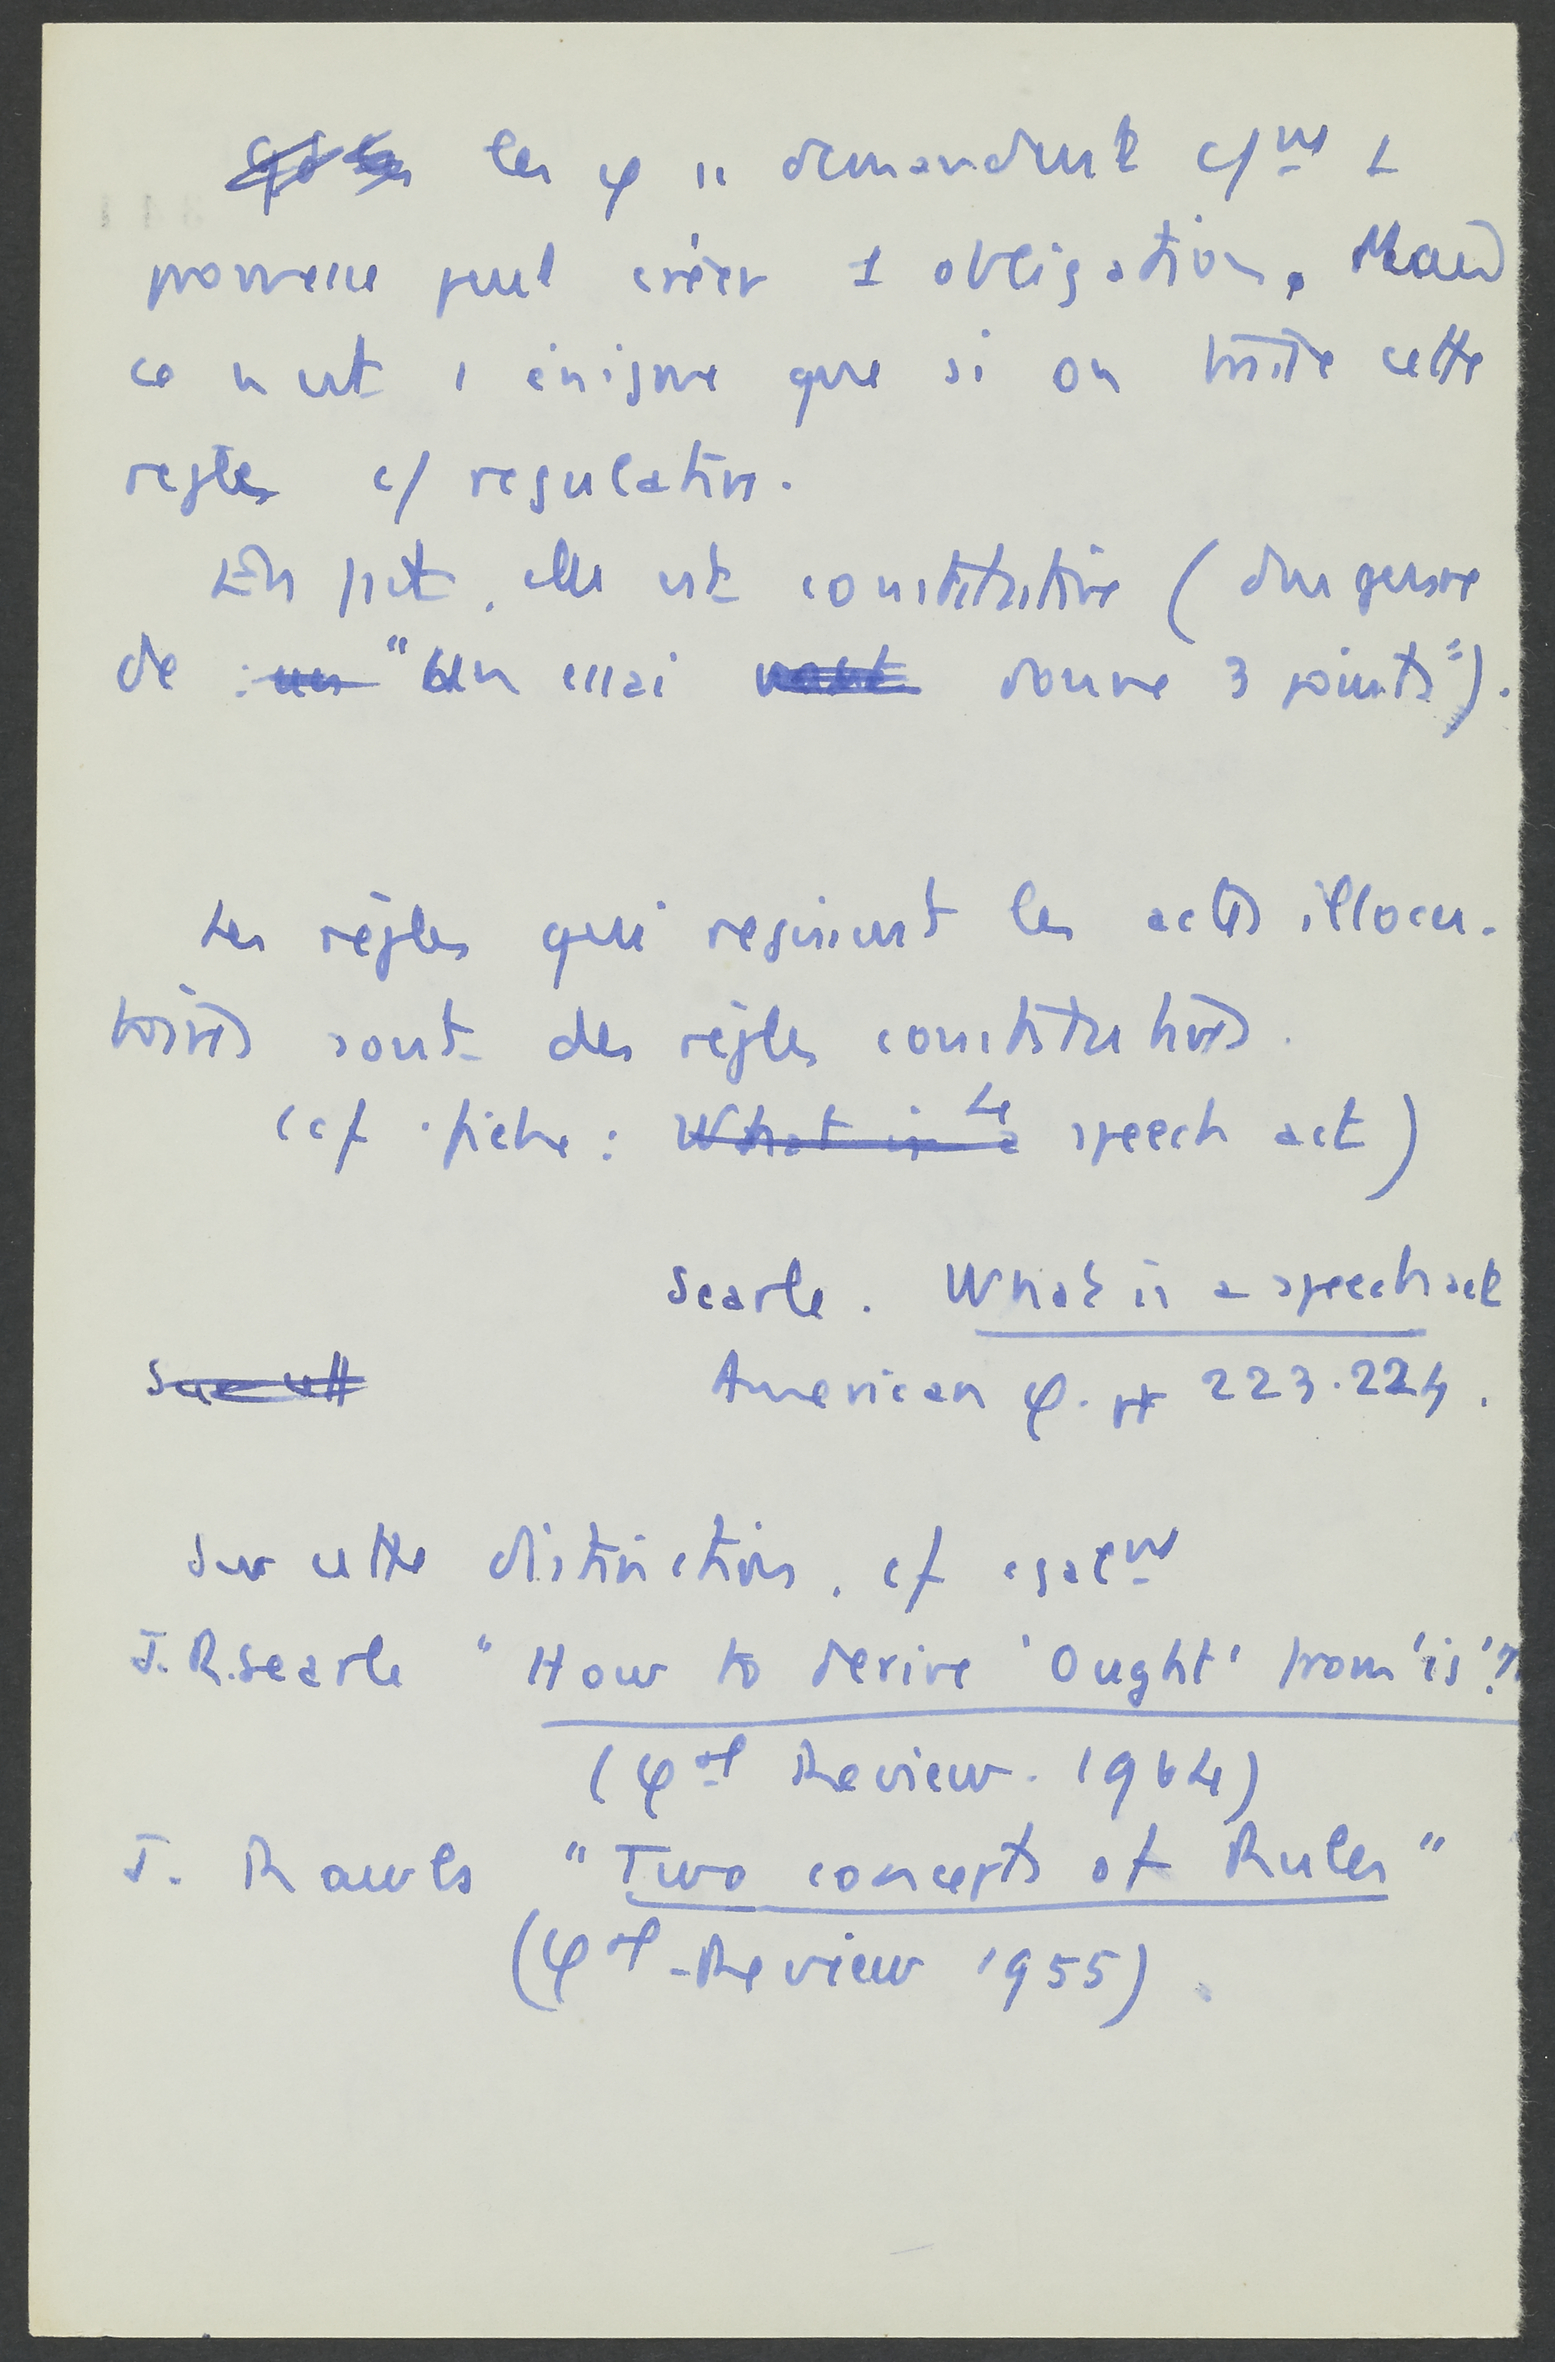 les φ se demandent c/nt 1
promesse peut créer 1 obligation. Mais
ce n'est 1 énigme que si on traite cette
règles c/ regulative.
En fait, elle est constitutive (du genre
de : un "Un essai vaut donne 3 points").
Les règles qui régissent les actes illocu-
toires sont des règles constitutives.
(cf. fiche : What is a Le speech act)
Searle. What is a speech act
American φ. 223-224.
Sur cett
Sur cette distinction. cf egalent
J.R. Searle "How to derive 'Ought' from 'is'?"
(φal Review. 1964)
J. Rawls "Two concepts of Rules"
(φal Review 1955).